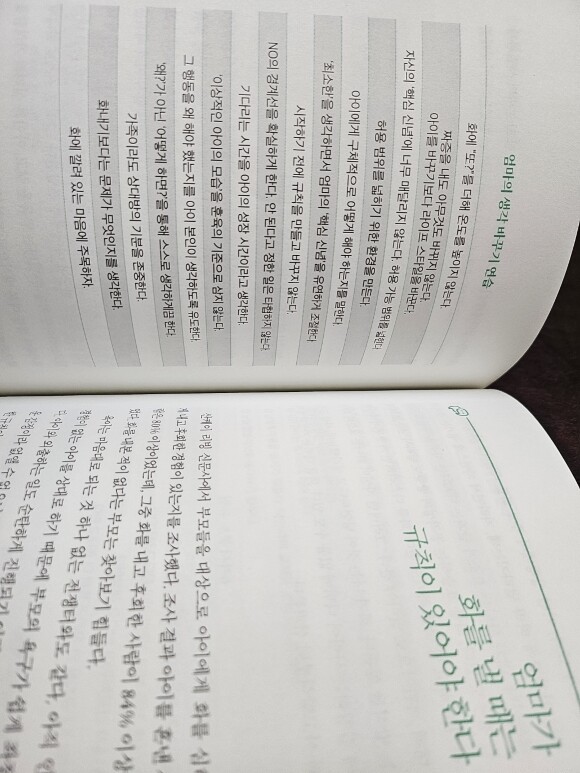 엄마의 생각 바꾸기 연습
화에 "또?"를 더해 온도를 높이지 않는다
짜증을 내도 아무것도 바뀌지 않는다.
아이를 바꾸기보다 라이프 스타일을 바꾼다.
자신의 '핵심 신념'에 너무 매달리지 않는다. 허용 가능 범위를 넓힌다
허용 범위를 넓히기 위한 환경을 만든다
아이에게 구체적으로 어떻게 해야 하는지를 말한다
'최소한'을 생각하면서 엄마의 '핵심 신념'을 유연하게 조절한다.
시작하기 전에 규칙을 만들고 바꾸지 않는다.
NO의 경계선을 확실하게 한다. 안 된다고 정한 일은 타협하지 않는다
기다리는 시간을 아이의 성장 시간이라고 생각한다.
'이상적인 아이'의 모습을 훈육의 기준으로 삼지 않는다.
그 행동을 왜 해야 했는지를 아이 본인이 생각하도록 유도한다.
'왜?'가 아닌 '어떻게 하면?'을 통해 스스로 생각하게끔 한다.
가족이라도 상대방의 기분을 존중한다.
화내기보다는 문제가 무엇인지를 생각한다.
화에 깔려 있는 마음에 주목하자.
엄마가
화를 낼 때는
규칙이 있어야 한다
리빙 신문사에서 부모들을 대상으로 아이에게 화를
내고 후회한 경험이 있는지를 조사했다. 조사 결과 아이를 혼낸
80% 이상이었는데, 그중 화를 내고 후회한 사람이 84% 이상
화를 내본 적이 없다는 부모는 찾아보기 힘들다.
육아는 마음대로 되는 것 하나 없는 전쟁터와도 같다. 아직
경험이 없는 아이를 상대로 하기 때문에 부모의 욕구가 쉽게
아이와 외출하는 일도 순탄하게 진행되기